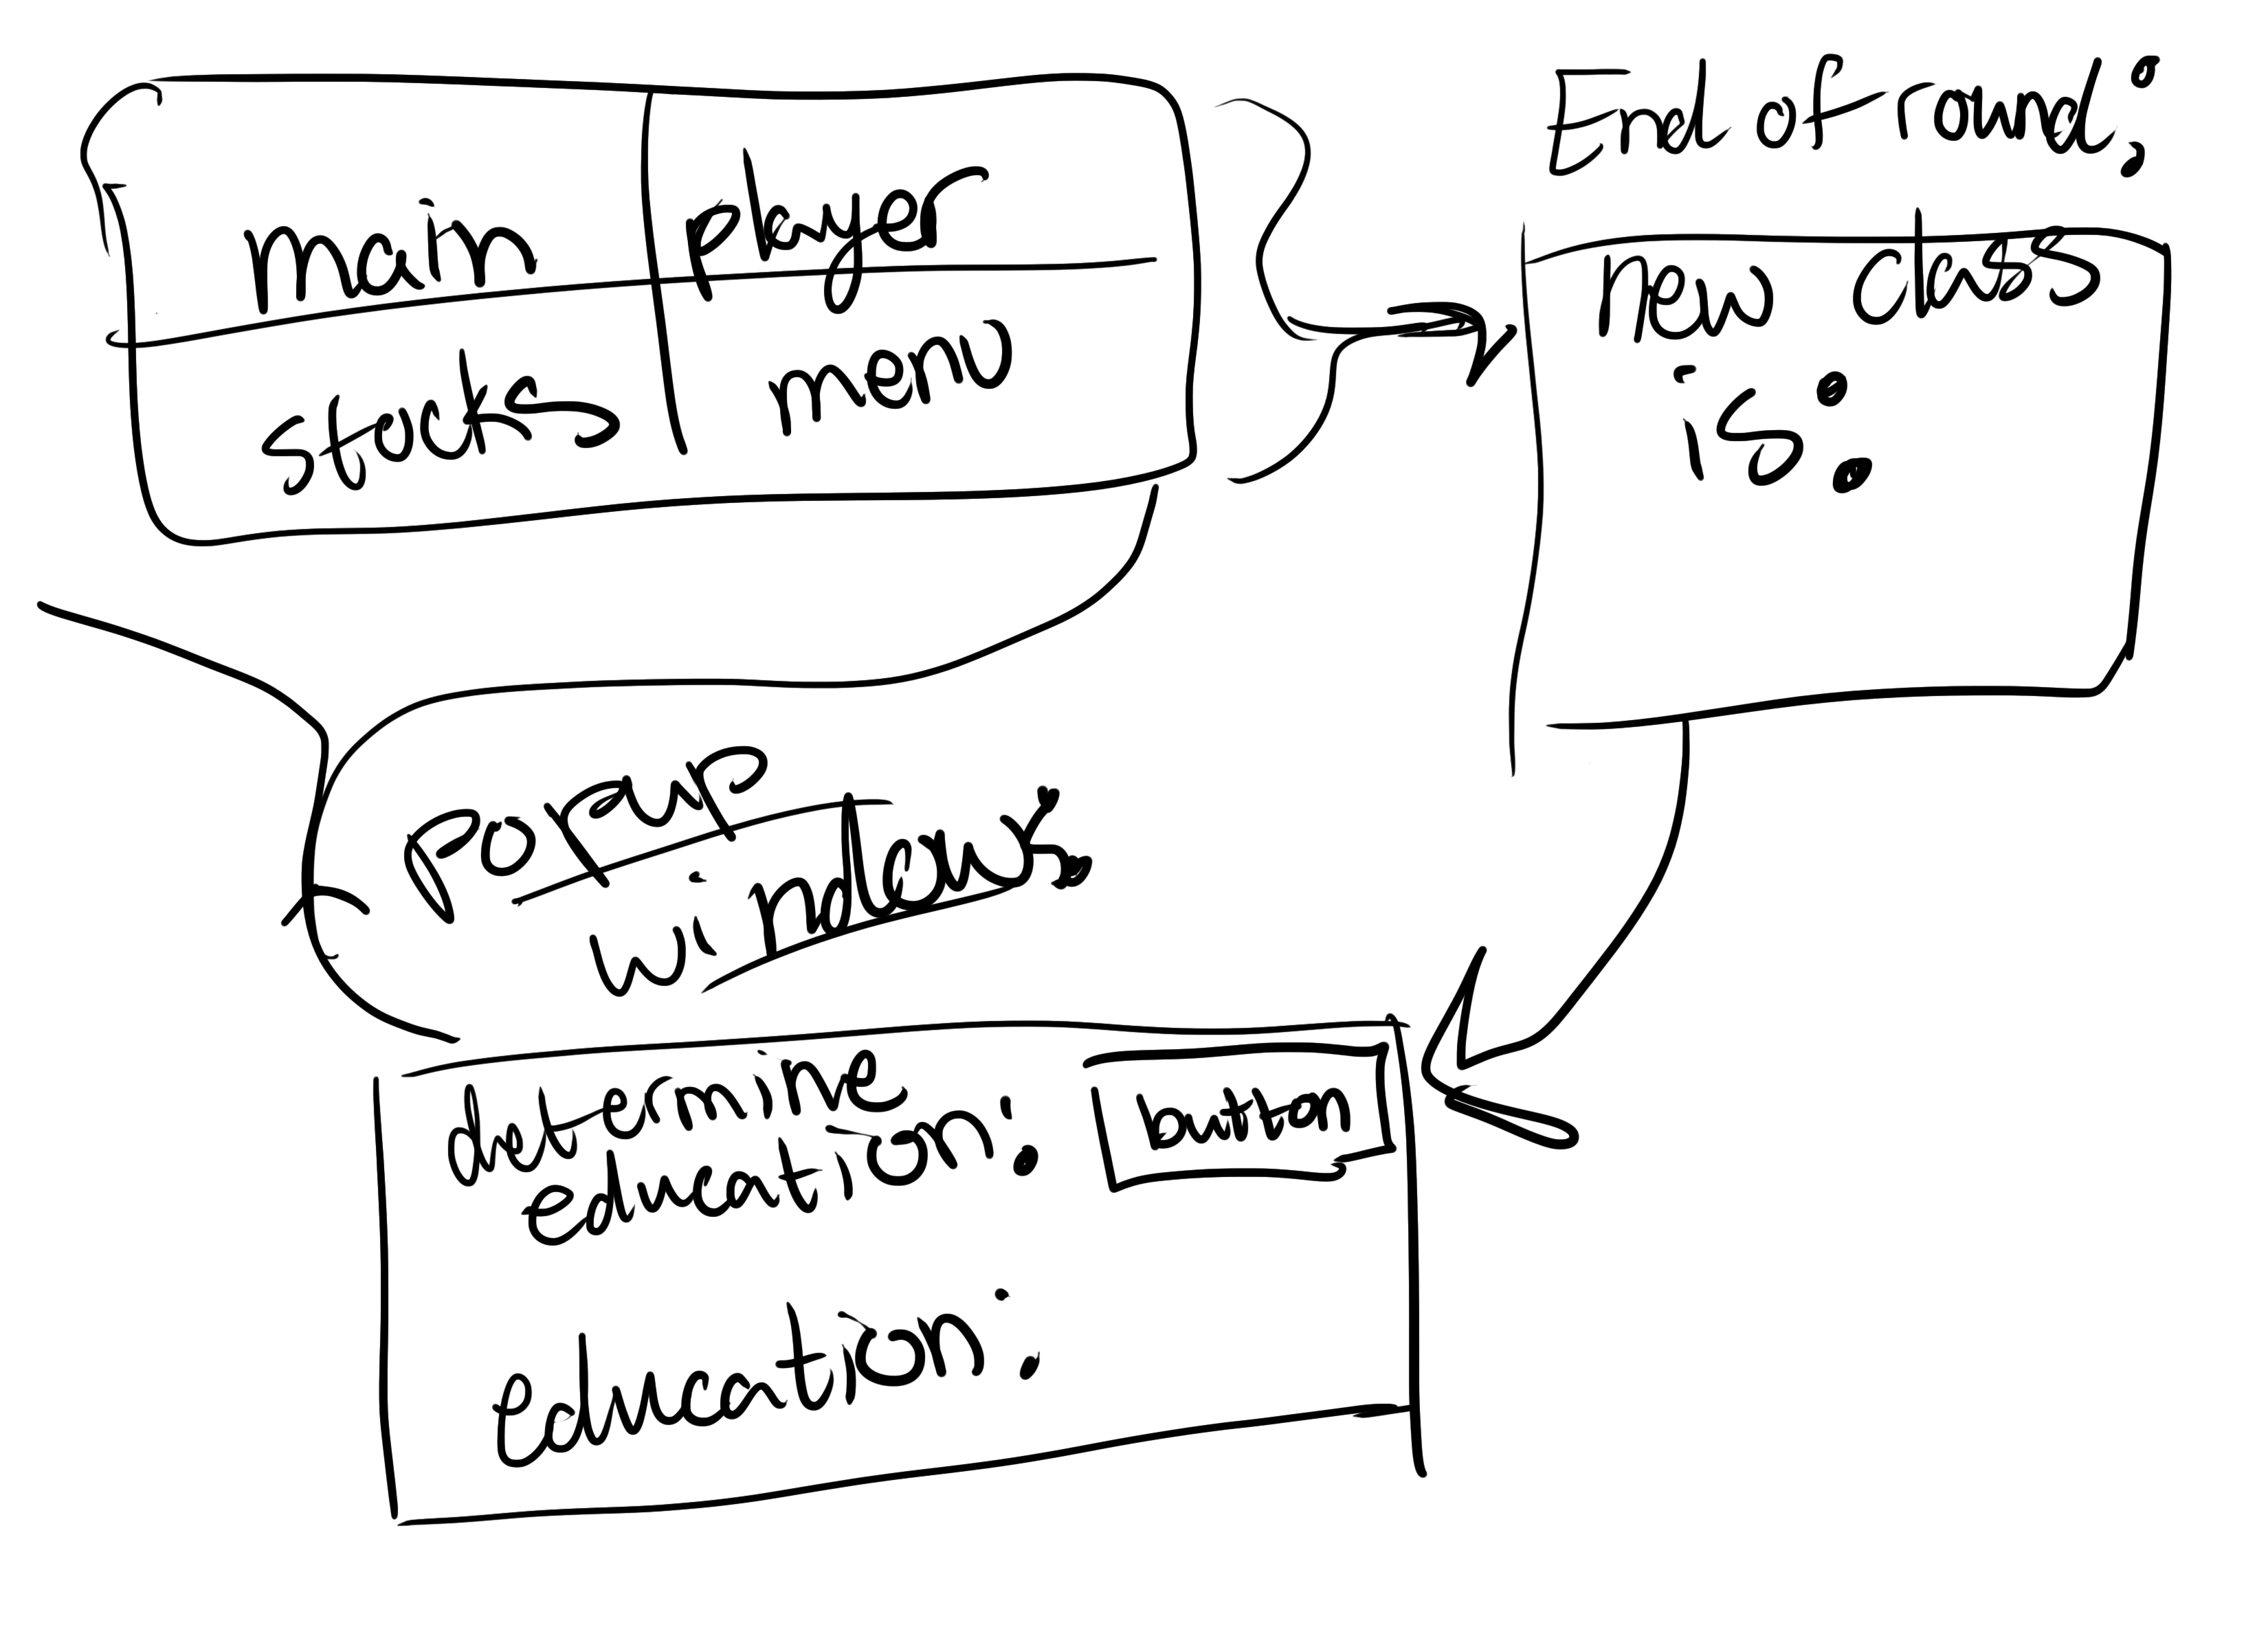 main
player
stocks
menu
End of round:
new class
is:
Popup
windows:
determine
education:
button
education: